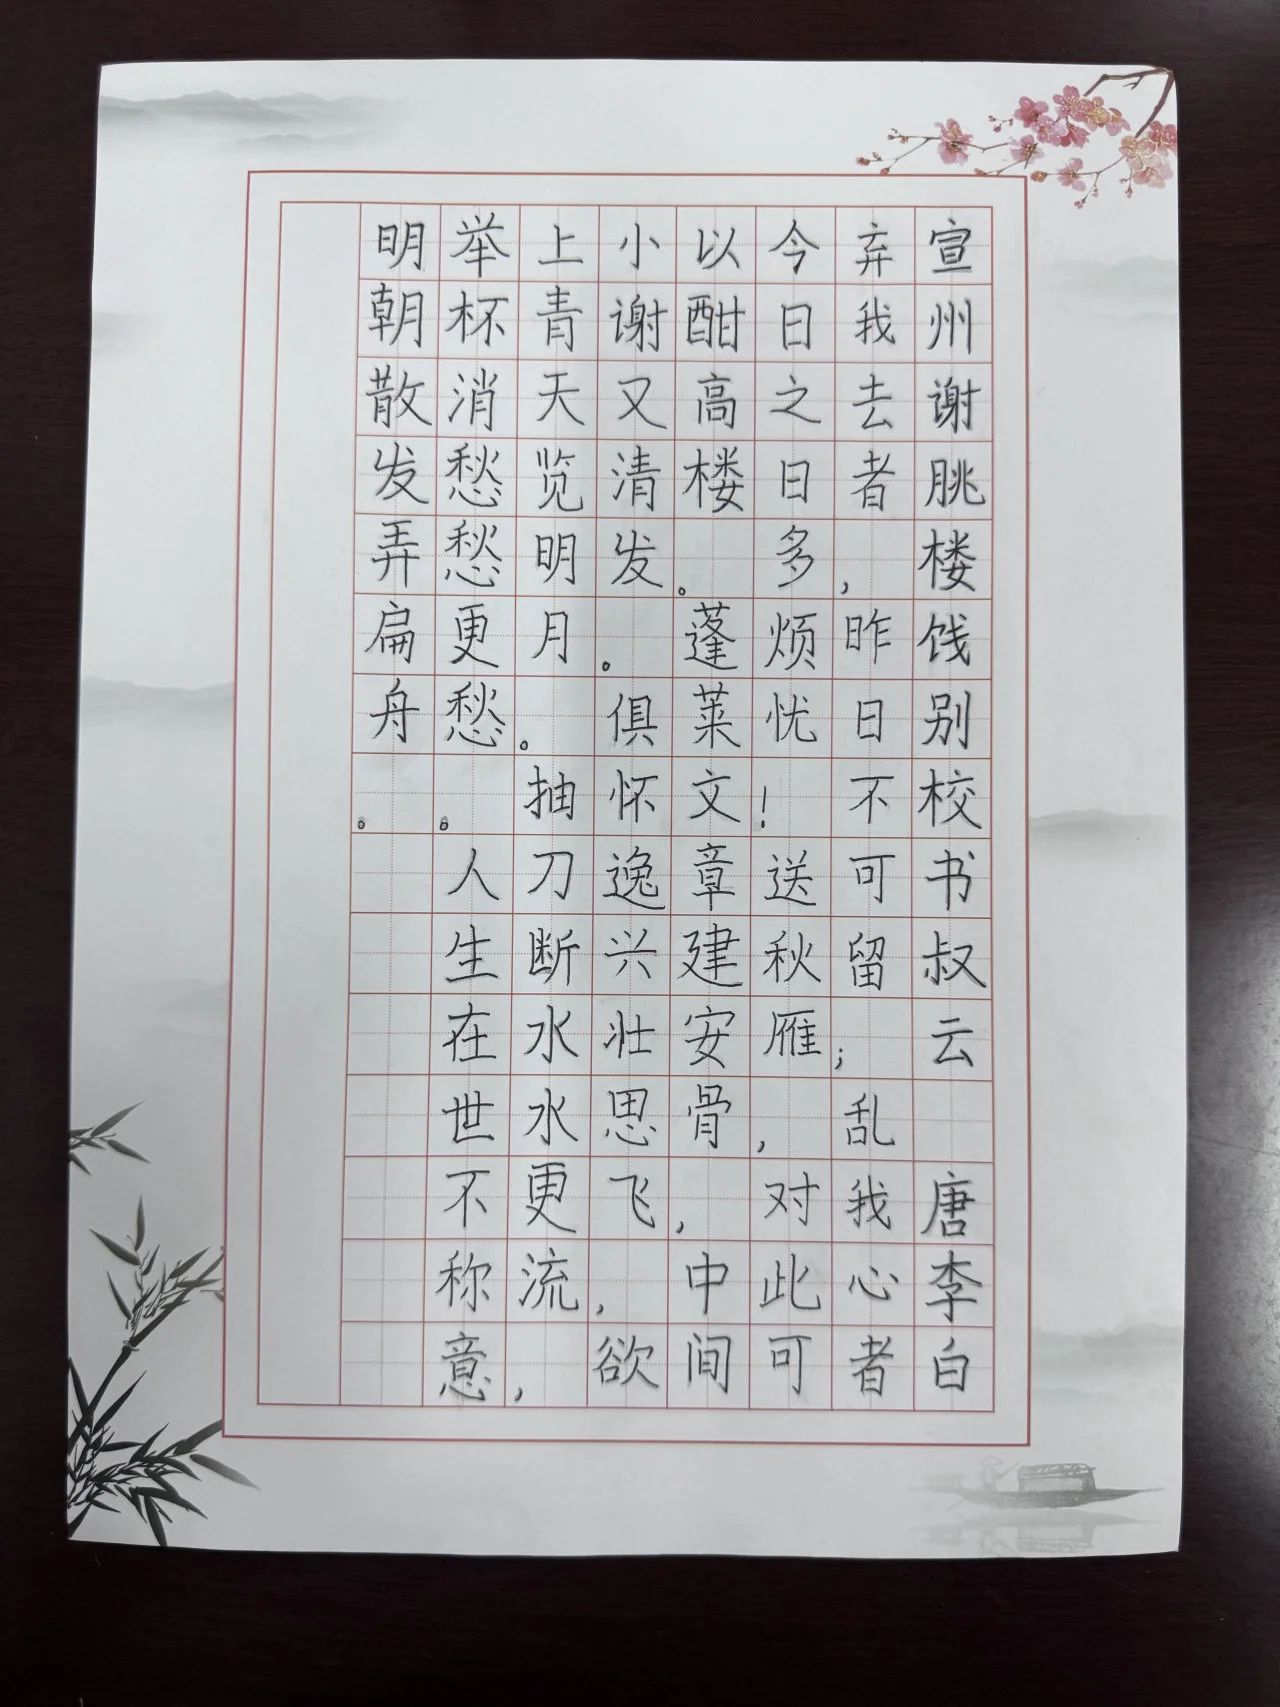 宣州谢朓楼饯别校书叔云 唐李白
弃我去者，昨日不可留；乱我心者
今日之日多烦忧！送秋雁，对此可
以酣高楼。蓬莱文章建安骨，中间
小谢又清发。俱怀逸兴壮思飞，欲
上青天览明月。抽刀断水水更流，
举杯消愁愁更愁。人生在世不称意，
明朝散发弄扁舟。